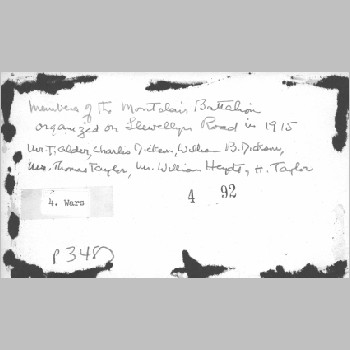 Members of the Montclair Battalion
organized on Llewellyn Road in 1915
Mr. Calder, Charles Dickson, William B. Dickson,
Mrs. Thomas Taylor, Mr. William H. Taylor
4. Wars
4 92
P 348